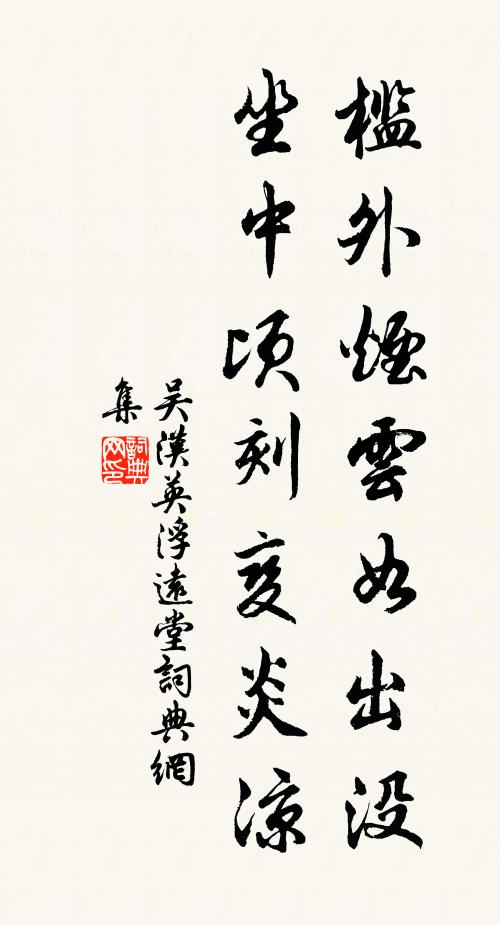 檻外煙雲如出沒
坐中頃刻变炎涼
吴漢英浮遠堂詞典網
集
詞典网印